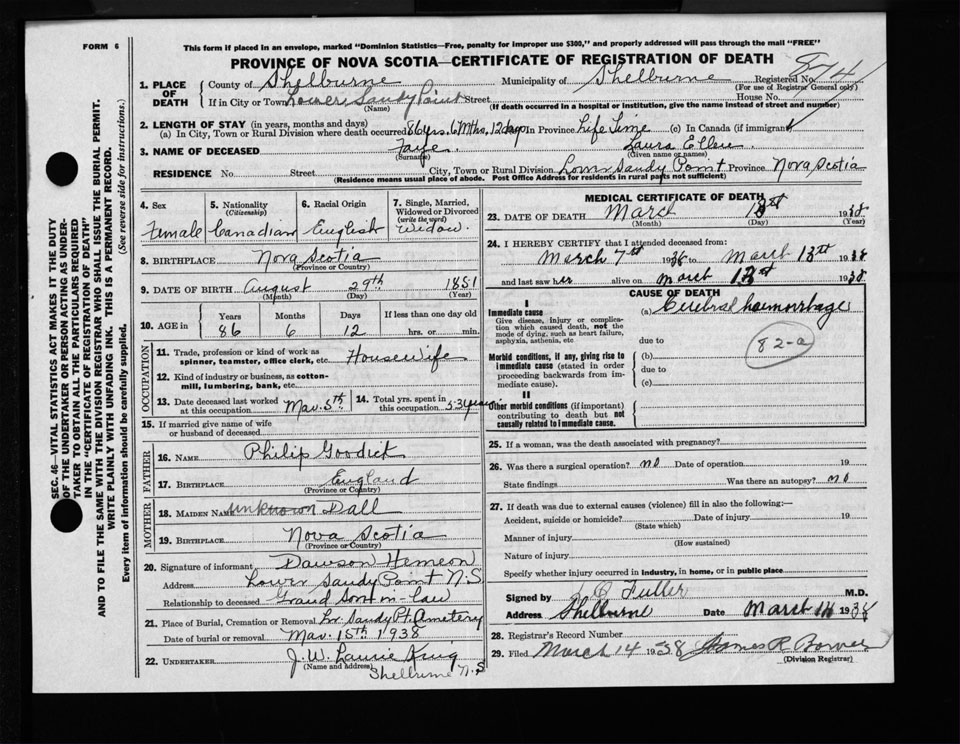 FORM 6
This form if placed in an envelope, marked "Dominion Statistics—Free, penalty for improper use $300," and properly addressed will pass through the mail "FREE"
PROVINCE OF NOVA SCOTIA—CERTIFICATE OF REGISTRATION OF DEATH
1. PLACE OF DEATH
County of Shelburne Municipality of Shelburne Registered No. 874
(For use of Registrar General only)
If in City or Town Lower Sandy Point Street House No.
(Name) (If death occurred in a hospital or institution, give the name instead of street and number)
2. LENGTH OF STAY (in years, months and days)
(a) In City, Town or Rural Division where death occurred 86 yrs. 6 Mths, 12 days In Province Life Time (c) In Canada (if immigrant)
3. NAME OF DECEASED Faye. Laura Ellen
(Surname) (Given name or names)
RESIDENCE No. Street City, Town or Rural Division Lower Sandy Point Province Nova Scotia
(Residence means usual place of abode. Post Office Address for residents in rural parts not sufficient)
SEC. 46—VITAL STATISTICS ACT MAKES IT THE DUTY
OF THE UNDERTAKER OR PERSON ACTING AS UNDER-
TAKER TO OBTAIN ALL THE PARTICULARS REQUIRED
IN THE "CERTIFICATE OF REGISTRATION OF DEATH"
AND TO FILE THE SAME WITH THE DIVISION REGISTRAR WHO SHALL ISSUE THE BURIAL PERMIT.
WRITE PLAINLY WITH UNFADING INK. THIS IS A PERMANENT RECORD.
Every item of information should be carefully supplied. (See reverse side for instructions.)
4. Sex
Female
5. Nationality
(Citizenship)
Canadian
6. Racial Origin
English
7. Single, Married,
Widowed or Divorced
(write the word)
Widow.
8. BIRTHPLACE Nova Scotia
(Province or Country)
9. DATE OF BIRTH August 29th 1851
(Month) (Day) (Year)
10. AGE in
Years Months Days If less than one day old
86 6 12 hrs. or min.
OCCUPATION
11. Trade, profession or kind of work as Housewife
spinner, teamster, office clerk, etc.
12. Kind of industry or business, as cotton-
mill, lumbering, bank, etc.
13. Date deceased last worked
at this occupation Mar. 5th
14. Total yrs. spent in
this occupation 53 years
15. If married give name of wife
or husband of deceased
FATHER
16. NAME Philip Goodick
17. BIRTHPLACE England
(Province or Country)
MOTHER
18. MAIDEN NAME unknown Dall
19. BIRTHPLACE Nova Scotia
(Province or Country)
20. Signature of informant Dawson Hemeon
Address Lower Sandy Point N.S
Relationship to deceased Grand Son in-law
21. Place of Burial, Cremation or Removal Lr. Sandy Pt. Cemetery
Date of burial or removal Mar. 15th 1938
22. UNDERTAKER J. W. Laurie King
(Name and address) Shelburne N.S
MEDICAL CERTIFICATE OF DEATH
23. DATE OF DEATH March 1938
(Month) (Day) (Year)
24. I HEREBY CERTIFY that I attended deceased from:
March 7th 1938 to March 13th 1938
and last saw her alive on March 1938
CAUSE OF DEATH
I
Immediate cause
Give disease, injury or complica-
tion which caused death, not the
mode of dying, such as heart failure,
asphyxia, asthenia, etc
(a) Cerebral haemorrhage
due to
82-a
Morbid conditions, if any, giving rise to
immediate cause (stated in order
proceeding backwards from im-
mediate cause).
(b)
due to
(c)
II
Other morbid conditions (if important)
contributing to death but not
causally related to immediate cause.
25. If a woman, was the death associated with pregnancy?
26. Was there a surgical operation? no Date of operation 19
State findings Was there an autopsy? no
27. If death was due to external causes (violence) fill in also the following:—
Accident, suicide or homicide? Date of injury 19
(State which)
Manner of injury
(How sustained)
Nature of injury
Specify whether injury occurred in industry, in home, or in public place
Signed by Fuller M.D.
Address Shelburne Date March 14 1938
28. Registrar's Record Number
29. Filed March 14 1938 James R Bower
(Division Registrar)